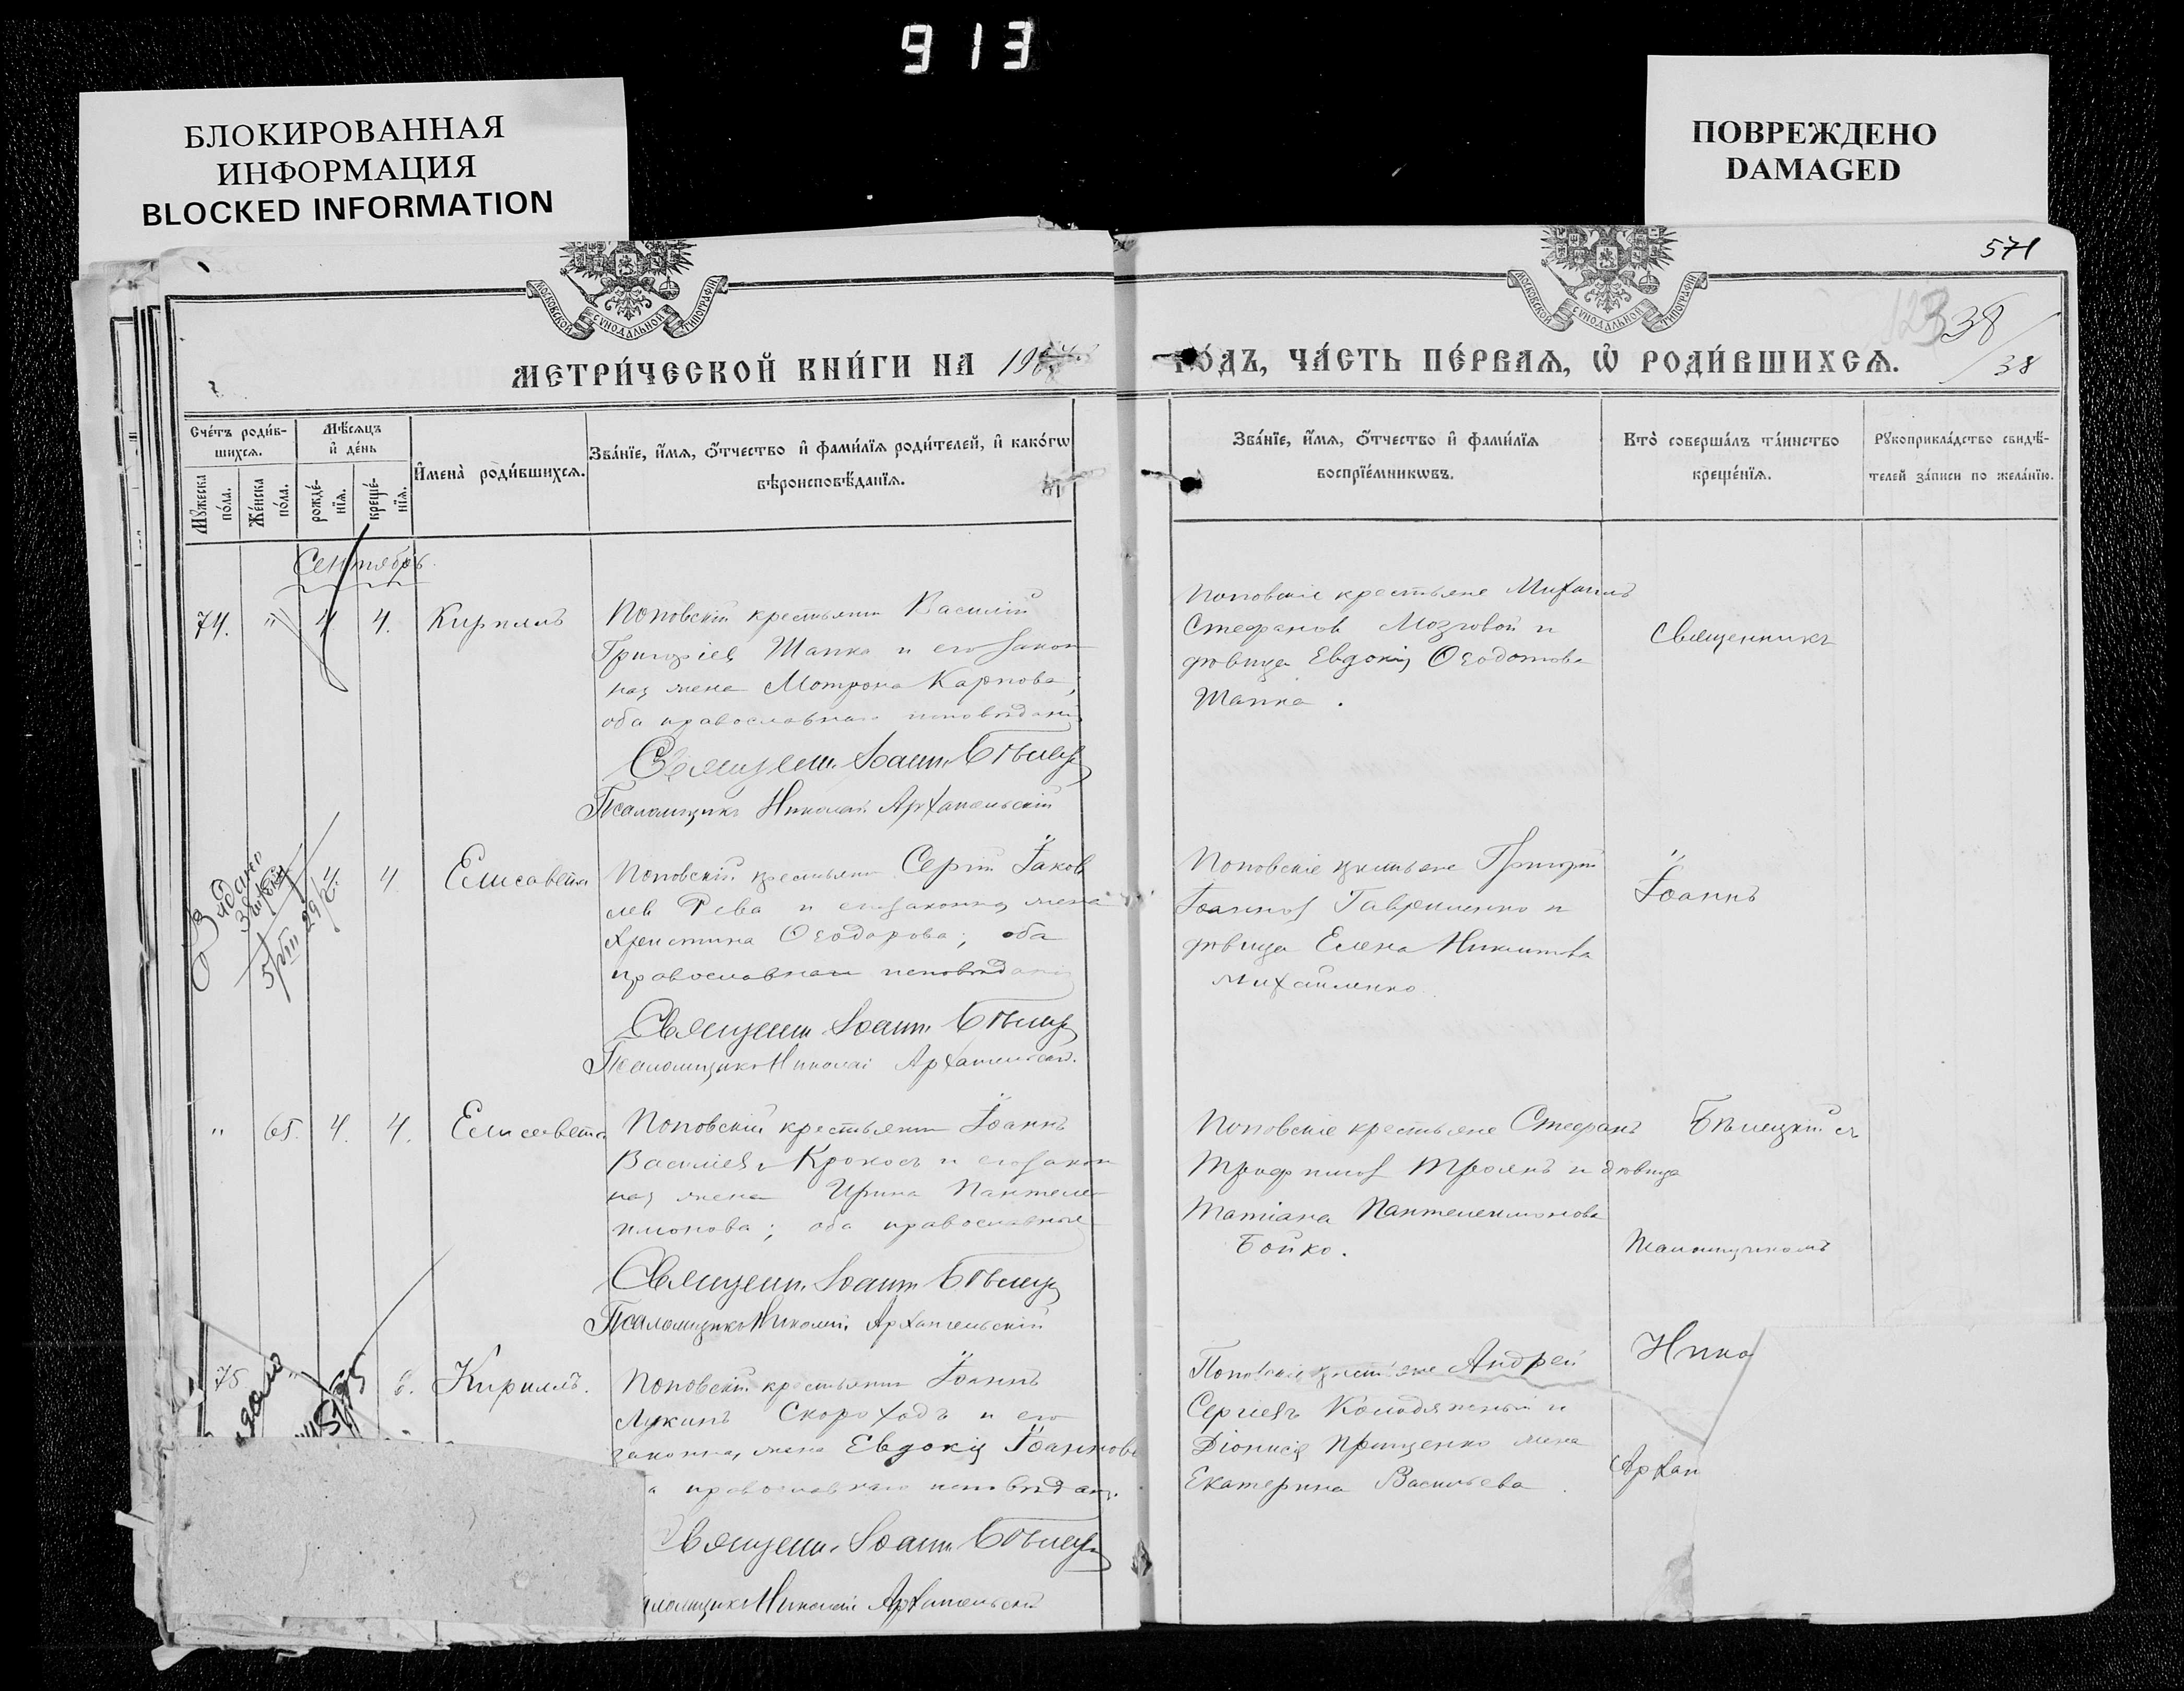 913
БЛОКИРОВАННАЯ
ИНФОРМАЦИЯ
BLOCKED INFORMATION
ПОВРЕЖДЕНО
DAMAGED
МОСКОВСКОЙ СѴНОДАЛЬНОЙ ТИПОГРАФІИ
МОСКОВСКОЙ СѴНОДАЛЬНОЙ ТИПОГРАФІИ
571
123 38
38
МЕТРИ́ЧЕСКОЙ КНИ́ГИ НА 190
ГО́ДЪ, ЧА́СТЬ ПЕ́РВАѦ, Ѡ҆ РОДИ́ВШИХСѦ.
Сче́тъ роди́в-
шихсѧ.
Мѣ́сѧцъ
и҆ де́нь
Мꙋ́жеска
по́ла.
Же́нска
по́ла.
рожде́-
нїѧ.
креще́-
нїѧ.
И҆мена̀ роди́вшихсѧ.
Зва́нїе, и҆́мѧ, ѻ҆́тчество и҆ фами́лїѧ роди́телей, и҆ како́гѡ
вѣроисповѣ́данїѧ.
Зва́нїе, и҆́мѧ, ѻ҆́тчество и҆ фами́лїѧ
воспрїе́мникѡвъ.
Кто̀ соверша́лъ та́инство
креще́нїѧ.
Рꙋкоприкла́дство свидѣ́-
телей за́писи по жела́нїю.
Сентябрь
74. " 4 4. Кириллъ
Поповскій крестьянин Василій
Григоріев Шапка и его закон
ная жена Мотрона Карпова;
оба православнаго исповѣданія
Священ. Іоанн Бѣлицк
Псаломщикъ Николай Архангельскій
Поповскіе крестьяне Михаилъ
Стефанов Мозговой и
дѣвица Евдокія Ѳеодотова
Шапка.
Священникъ
4. 4 Елисавета
Поповскій крестьянин Сергій Іаков
лев Рева и его законная жена
Христина Ѳеодорова; оба
православнаго исповѣданія
Священн Іоанн Бѣлицк
Псаломщикъ Николай Архангельскій.
Поповскіе крестьяне Григорій
Іоаннов Гавриленко и
дѣвица Елена Никитова
Михайленко.
Іоаннъ
" 65. 4. 4. Елисавета
Поповскій крестьянин Іоаннъ
Васильев Крокосъ и его закон
ная жена Ирина Пантеле
имонова; оба православные
Священн. Іоанн Бѣлицк
Псаломщикъ Николай Архангельскій
Поповскіе крестьяне Стефанъ
Трофимов Троянъ и дѣвица
Татіана Пантелеимонова
Бойко.
Бѣлицкій съ
Псаломщикомъ
75 " 6. Кириллъ.
Поповскій крестьянин Іоаннъ
Лукинъ Скороходъ и его
законная жена Евдокія Іоаннова
а православнаго исповѣданія.
вященн. Іоанн Бѣлицк
аломщикъ Николай Архангельскій
Поповскіе крестьяне Андрей
Сергіевъ Колодяжный и
Діонисія Прищенко жена
Екатерина Васильева.
Нико
Архан